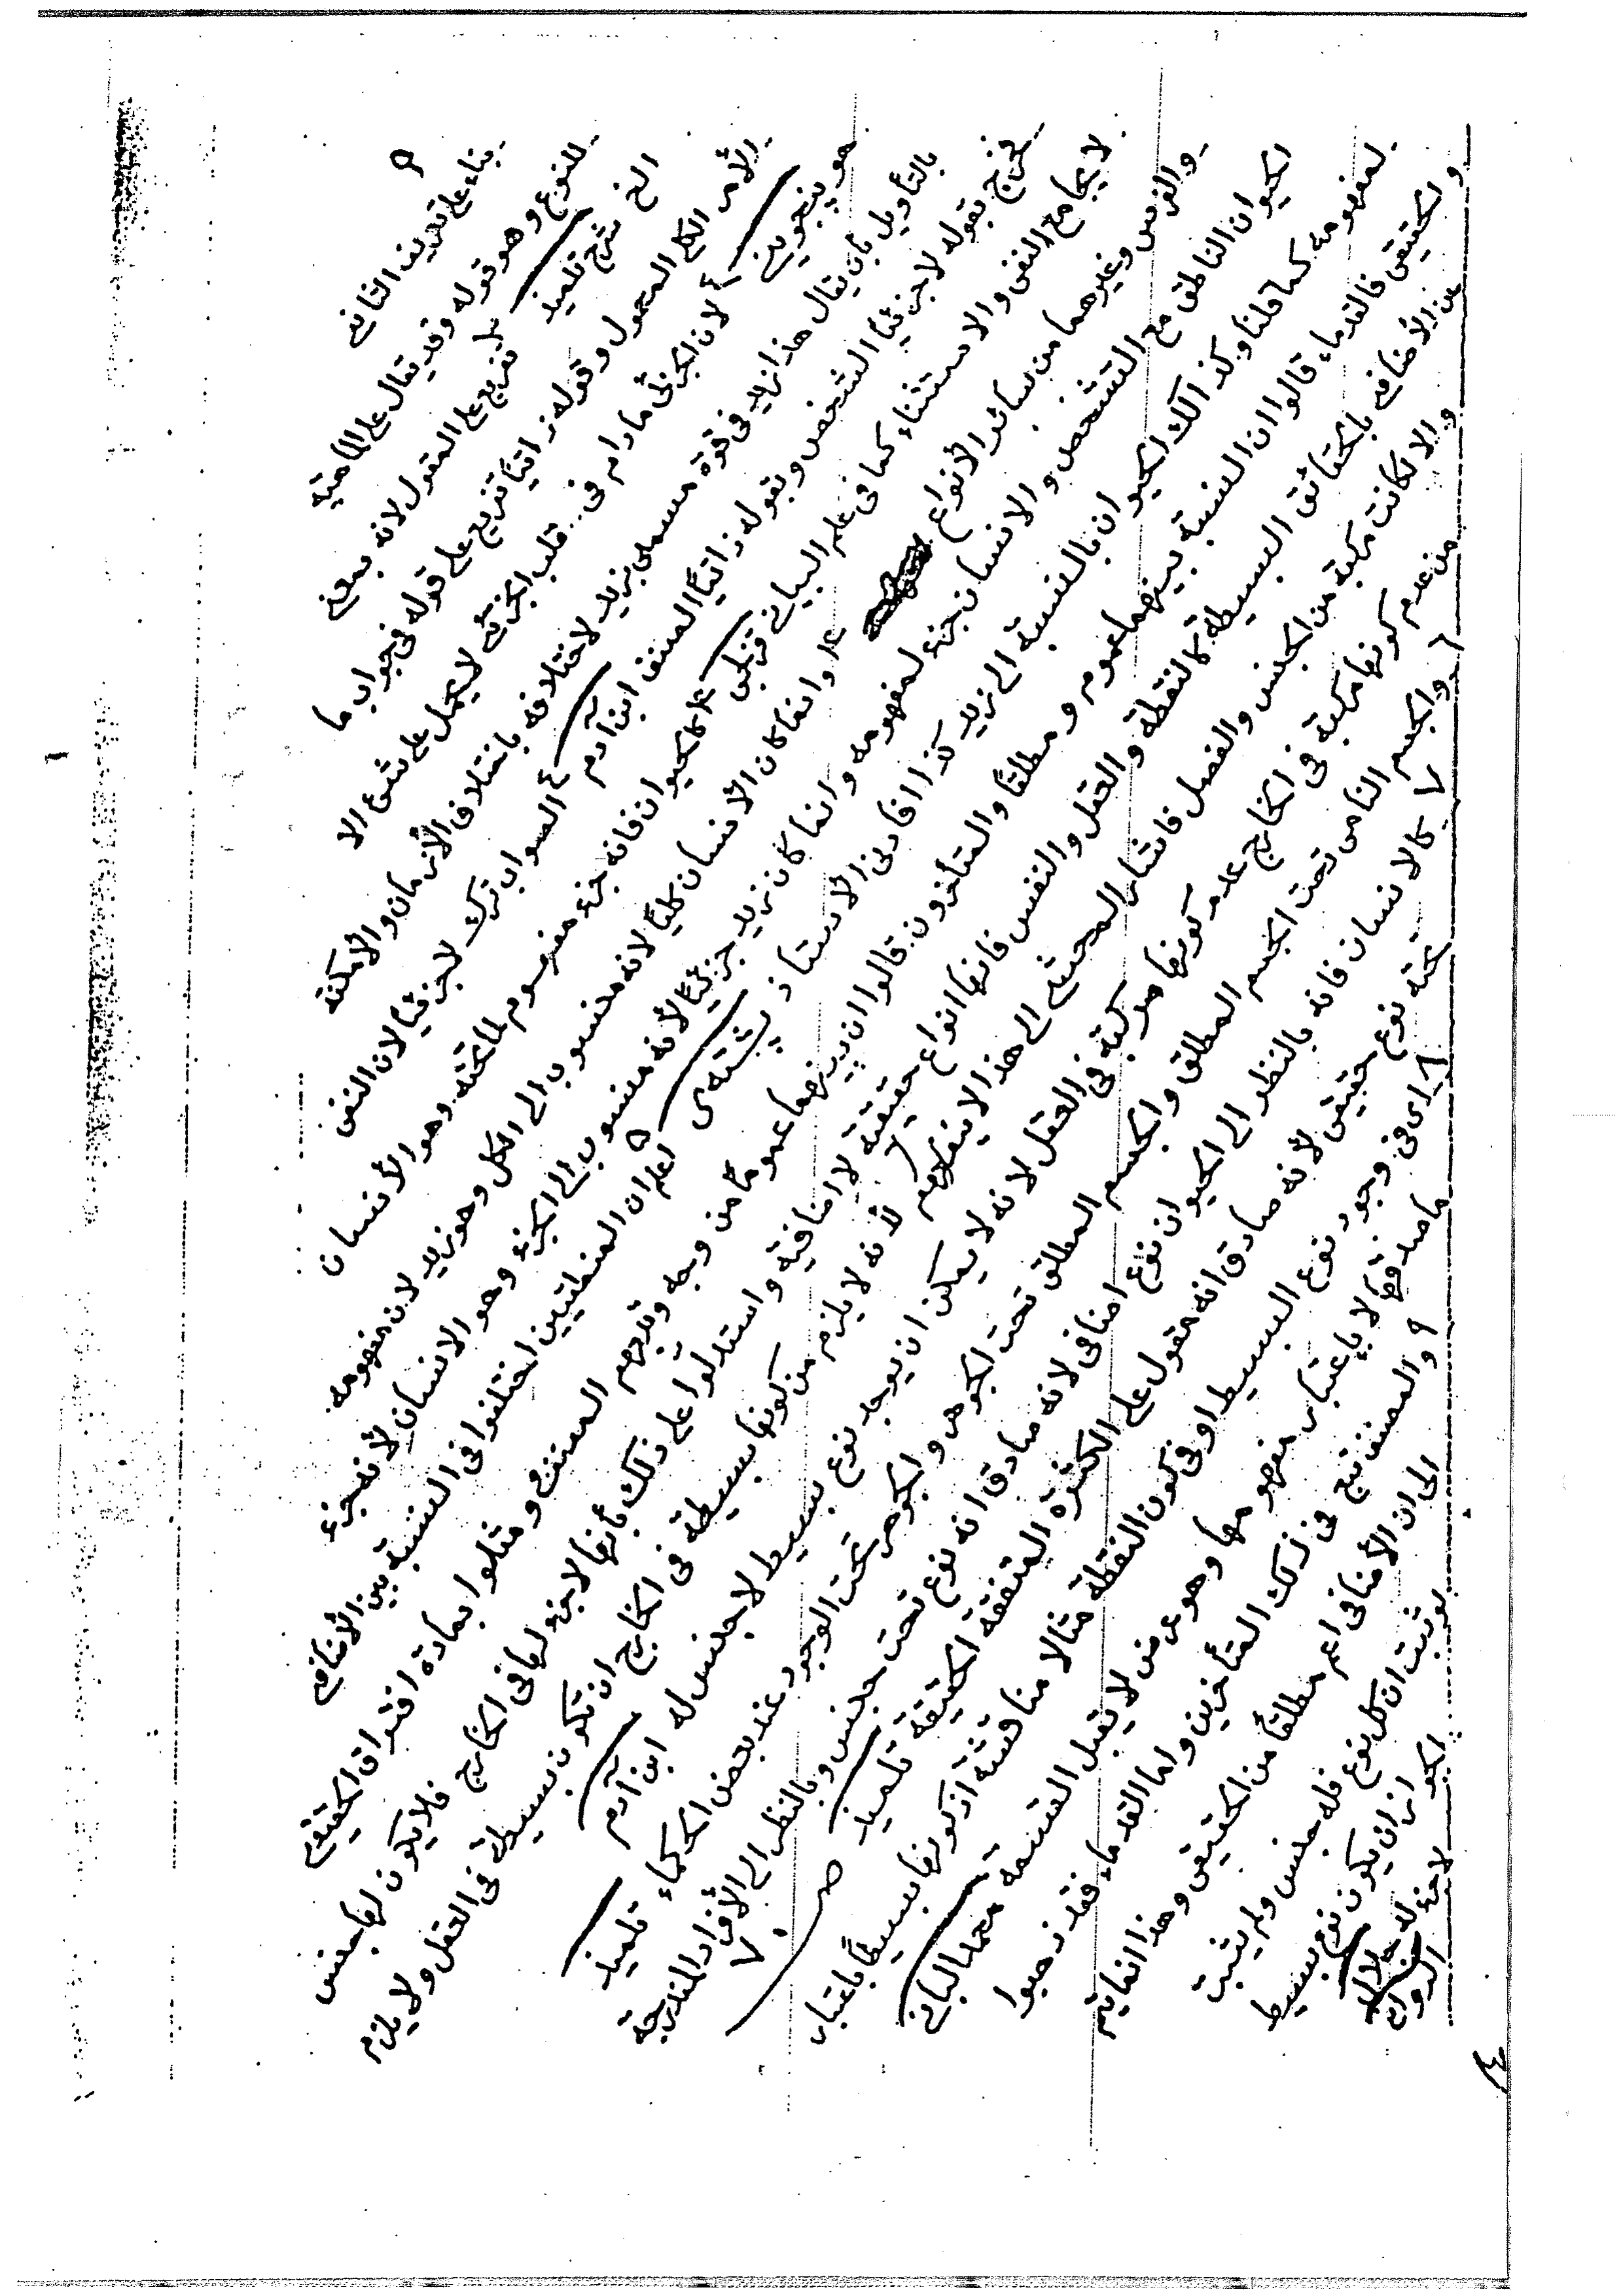 بناء على تعريف الثاني
للنوع وهو قوله وقد يقال على الماهية
الخ شرح تلميذ بل تفريع على المقول لانه بمعنى
الأمر الكلي المحمول وقوله ذاتيًا تفريع على قوله فى جواب ما
هو بينجويني ٤ لان الجزئى مادام فى قلب الجزئي لا يحمل على شئ الا
بالتأويل بأن يقال هذا زيد فى قوة مسمى بزيد لاختلافه باختلاف الأزمان والأمكنة
فخرج بقوله لا جزئيًا الشخص وبقوله ذاتيًا الصنف ابن آدم ٤ الصواب ترك لا جزئيا لان النفى
لا يجامع النفى والاستثناء كما فى علم البيان قزلجي ٤ كالحيوان فانه جزء مفهوم لما تحته وهو الأنسان
والفرس وغيرهما من سائر الأنواع ٤ وانما كان الأنسان كليًا لانه منسوب الى الكل وهو زيد لان مفهومه
الحيوان الناطق مع التشخص والانسان جزء لمفهومه وانما كان زيد جزئيًا لأنه منسوب الى الجزء وهو الانسان لأنه جزء
لمفهومه كما قلنا وكذ الك الحيوان بالنسبة الى زيد كذا افادنى الأستاذ پشتةى ٥ اعلم ان المنطقيين اختلفوا فى النسبة بين الأضافي
والحقيقى فالقدماء قالوا ان النسبة بينهما عموم و مطلقًا والمتأخرون قالوا ان بينهما عمومًا من وجه وتبعهم المصنف ومثلوا بمادة افتراق الحقيقي
عن الأضافي بالحقائق البسيطة كالنقطة والعقل والنفس فانها انواع حقيقية لا اضافية واستدلوا على ذلك بأنها لا جزء لها فى الخارج فلا يكون لها جنس
والا لكانت مركبة من الجنس والفصل فاشار المحشي الى هذا لأنه لا يلزم من كونها بسيطة فى الخارج ان تكون بسيطة فى العقل ولا يلزم
من عدم كونها مركبة فى الخارج عدم كونها مركبة فى العقل لانه لا يمكن ان يوجد نوع بسيط لا جنس له ابن آدم
٦ والجسم النامى تحت الجسم المطلق والجسم المطلق تحت الجوهر والجوهر تحت الوجود عند بعض الحكماء تلميذ
٧ كالانسان فانه بالنظر الى الحيوان نوع اضافى لانه صادق انه نوع تحت جنس وبالنظر الى الأفراد المندرجة
تحته نوع حقيقى لأنه صادق انه مقول على الكثرة المتفقة الحقيقة تلميذ ص ٧
٨ اى فى وجود نوع البسيط او فى كون النقطة مثالا مناقشة اذ كونها بسيطًا باعتبار
ما صدقها لا بإعتبار مفهومها وهو عرض لا يقبل القسمة محمد الباني
٩ والمصنف تبع فى ذلك المتأخرين واما القدماء فقد ذهبوا
الى ان الأضافى اعم مطلقًا من الحقيقى وهذا انما يتم
لو ثبت ان كل نوع فله جنس ولم يثبت
لجواز ان يكون نوع بسيط
لا جزء له جلال
الدواني